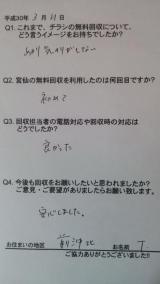 平成30年 3月 21日
Q1. これまで、チラシの無料回収について、
どう言うイメージをお持ちでしたか?
あまり気がりがしない
Q2. 宮仙の無料回収を利用したのは何回目ですか?
初めて
Q3. 回収担当者の電話対応や回収時の対応は
どうでしたか?
良かった
Q4. 今後も回収をお願いしたいと思われましたか?
ご意見・ご要望がありましたらお願い致します。
安心しました。
お住まいの地区
お名前 T
ご協力ありがとうございました!!